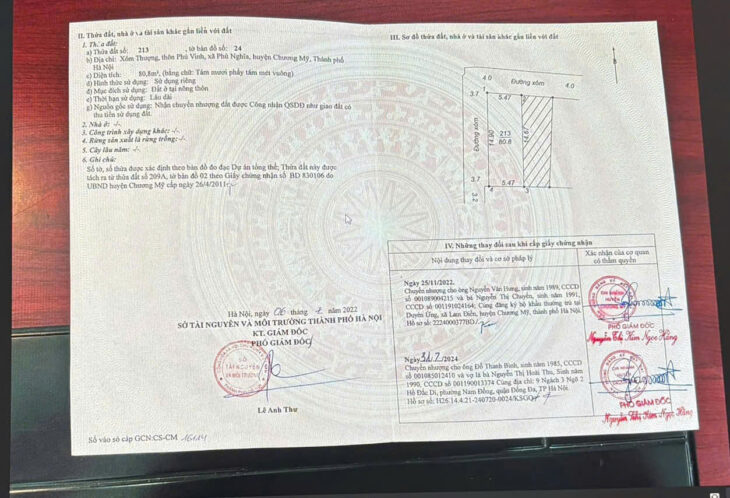 II. Thửa đất, nhà ở và tài sản khác gắn liền với đất
1. Thửa đất:
a) Thửa đất số: 213 , tờ bản đồ số: 24
b) Địa chỉ: Xóm Thượng, thôn Phú Vinh, xã Phú Nghĩa, huyện Chương Mỹ, Thành phố
Hà Nội
c) Diện tích: 80,8m², (bằng chữ: Tám mươi phẩy tám mét vuông)
d) Hình thức sử dụng: Sử dụng riêng
đ) Mục đích sử dụng: Đất ở tại nông thôn
e) Thời hạn sử dụng: Lâu dài
g) Nguồn gốc sử dụng: Nhận chuyển nhượng đất được Công nhận QSDĐ như giao đất có
thu tiền sử dụng đất.
2. Nhà ở: -/-
3. Công trình xây dựng khác: -/-
4. Rừng sản xuất là rừng trồng: -/-
5. Cây lâu năm: -/-
6. Ghi chú:
Số tờ, số thửa được xác định theo bản đồ đo đạc Dự án tổng thể; Thửa đất này được
tách ra từ thửa đất số 209A, tờ bản đồ 02 theo Giấy chứng nhận số BD 830106 do
UBND huyện Chương Mỹ cấp ngày 26/4/2011
Hà Nội, ngày 06 tháng 7 năm 2022
SỞ TÀI NGUYÊN VÀ MÔI TRƯỜNG THÀNH PHỐ HÀ NỘI
KT. GIÁM ĐỐC
PHÓ GIÁM ĐỐC
SỞ
TÀI NGUYÊN
VÀ MÔI TRƯỜNG
Lê Anh Thư
Số vào sổ cấp GCN:CS-CM
III. Sơ đồ thửa đất, nhà ở và tài sản khác gắn liền với đất
B
4.0 Đường xóm 4.0
3.7 5.47
Đường xóm 14.90 213 14.67
80.8
3.7 5.47
3.2
IV. Những thay đổi sau khi cấp giấy chứng nhận
Nội dung thay đổi và cơ sở pháp lý
Xác nhận của cơ quan
có thẩm quyền
Ngày 25/11/2022.
Chuyển nhượng cho ông Nguyễn Văn Hưng, sinh năm 1989, CCCD
số 001089004215 và bà Nguyễn Thị Chuyên, sinh năm 1991,
CCCD số 001191024164; Cùng đăng ký hộ khẩu thường trú tại
Duyên Ứng, xã Lam Điền, huyện Chương Mỹ, thành phố Hà Nội.
Hồ sơ số: 222400037 7BD
CHI NHÁNH
HUYỆN
PHÓ GIÁM ĐỐC
Nguyễn Thị Kim Ngọc Hằng
Ngày 31/7/2024
Chuyển nhượng cho ông Đỗ Thanh Bình, sinh năm 1985, CCCD
số 001085012410 và vợ là bà Nguyễn Thị Hoài Thu, Sinh năm
1990, CCCD số 001190013374 Cùng địa chỉ: 9 Ngách 3 Ngõ 2
Hồ Đắc Di, phường Nam Đồng, quận Đống Đa, TP Hà Nội.
Hồ sơ số: H26.14.4.21-240720-0024/KSGQ
PHÓ GIÁM ĐỐC
Nguyễn Thị Kim Ngọc Hằng